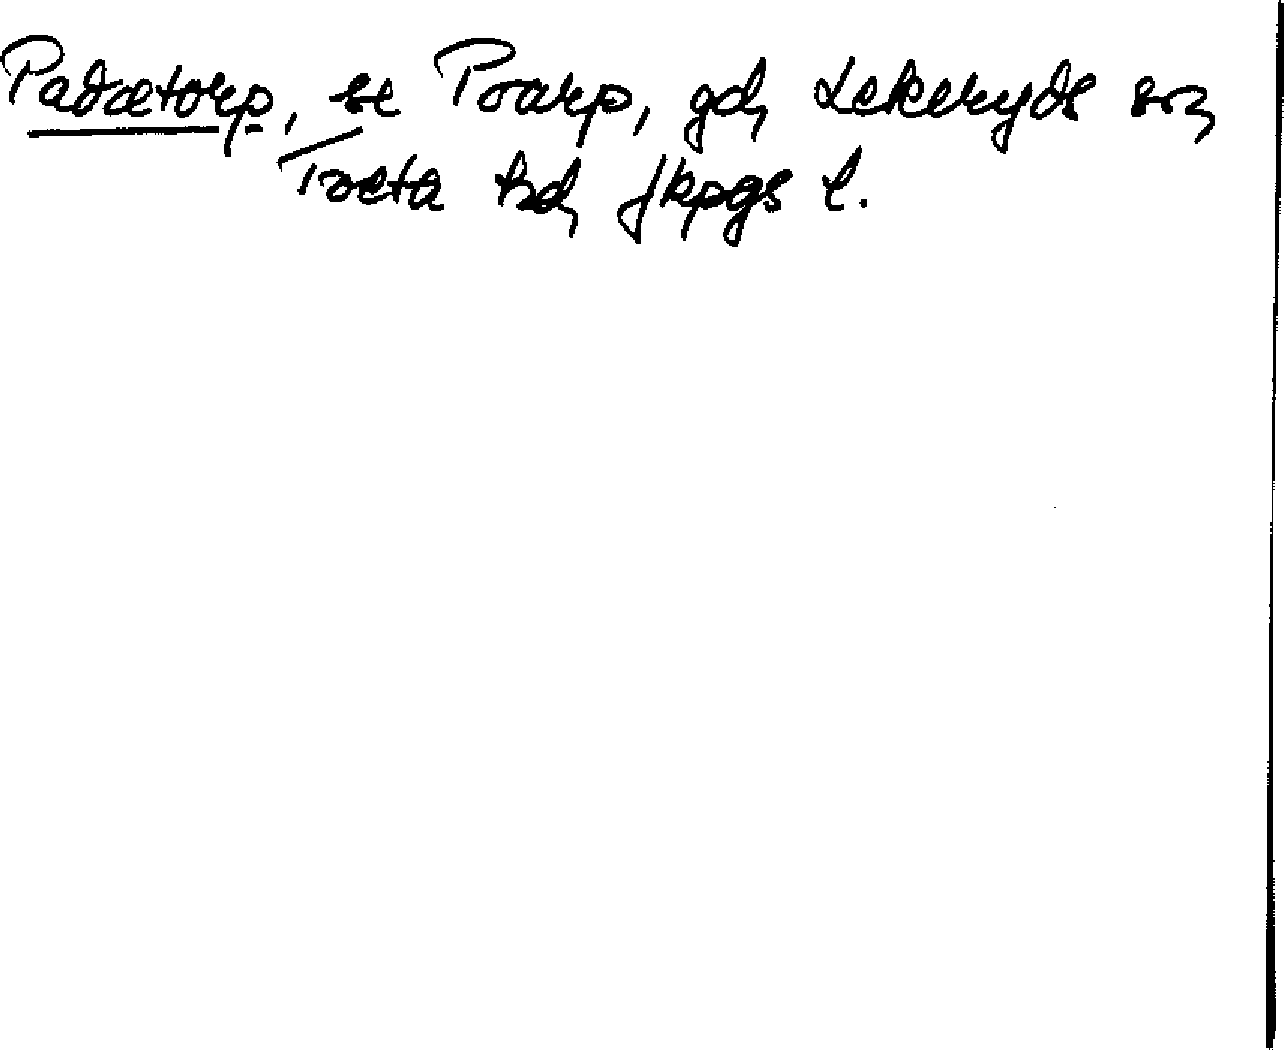 Padætorp, se Prarp, gd, Lekeryds sn,
Tveta hd, Jkpgs l.